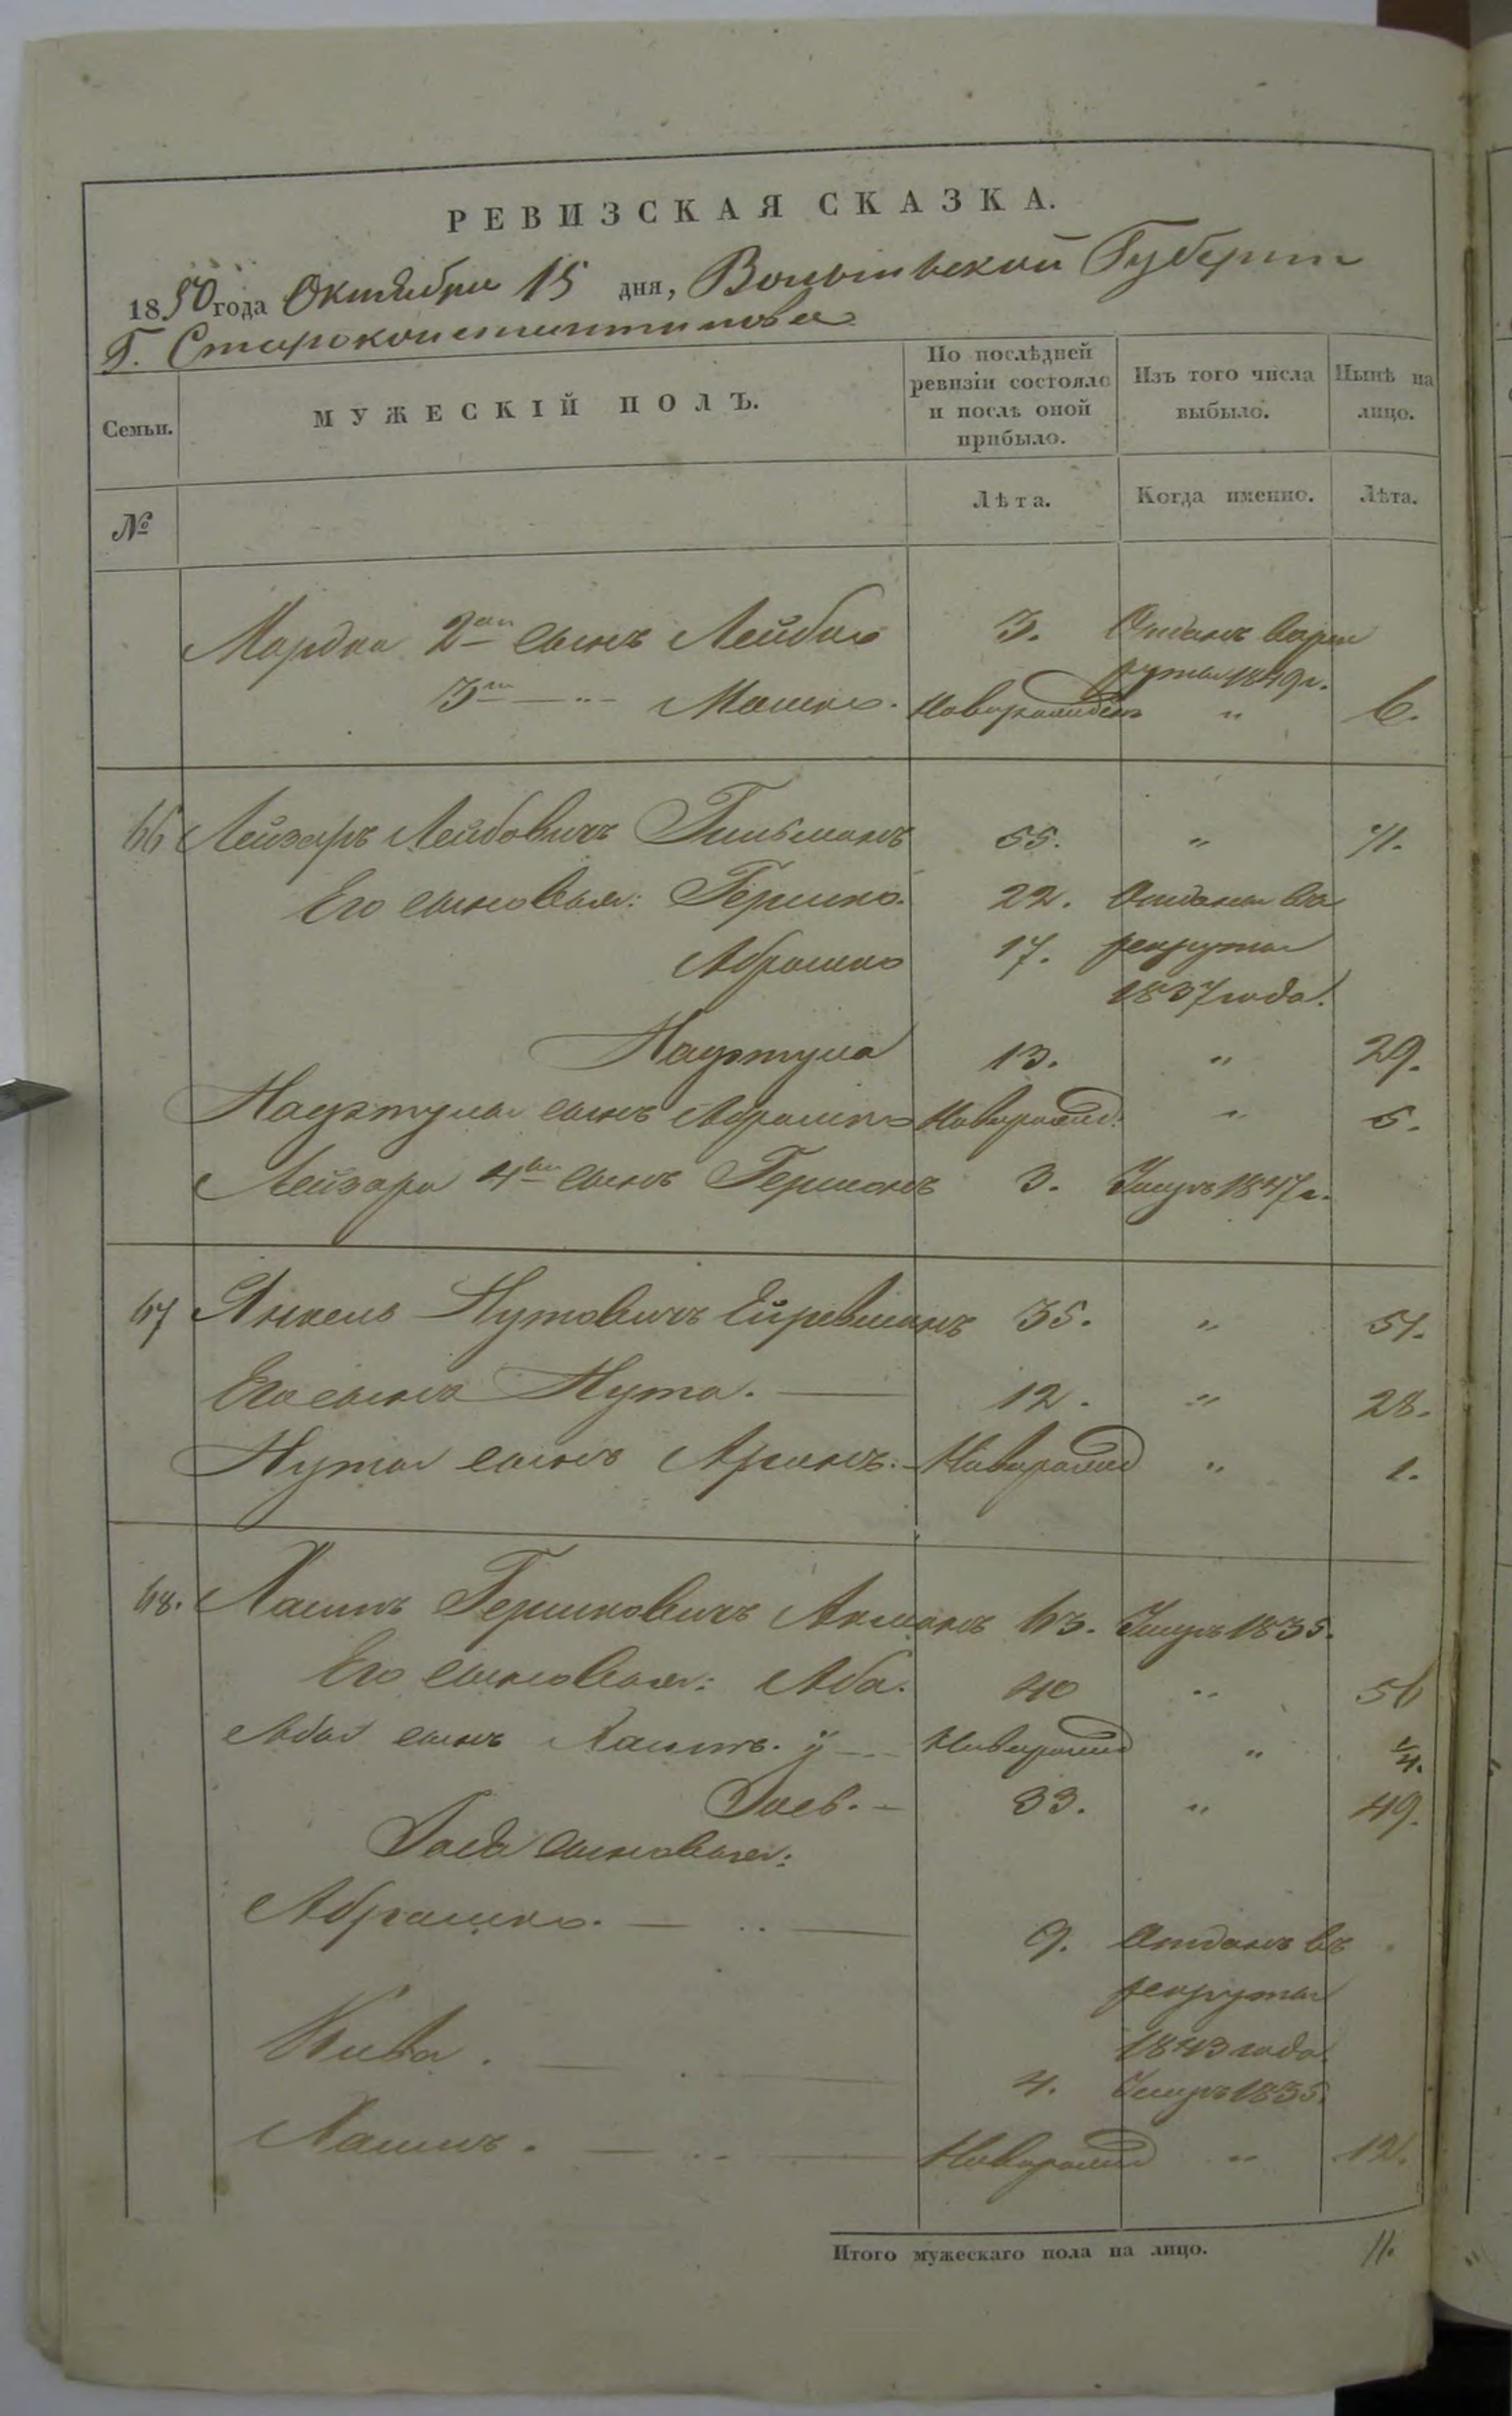 РЕВИЗСКАЯ СКАЗКА.
1850 года Октября 15 дня, Волынской Губернии
Г. Староконстантинова
Семьи. МУЖЕСКІЙ ПОЛЪ. По послѣдней ревизіи состояло и послѣ оной прибыло. Изъ того числа выбыло. Нынѣ на лицо.
№ Лѣта. Когда именно. Лѣта.
Мордка 2й сынъ Лейба 3. Отданъ в рек
руты 1849 г.
3й — " Мошко. Новорожденъ " 6.
66 Лейзеръ Лейбовичъ 55. " 71.
Его сыновья: Гершко. 22. Отданы в
Абрашко 17. рекруты
1837 года.
13. " 29.
сынъ Абрашко Новорожд. " 5.
Лейзера 4й сынъ 3. Умеръ 1847 г.
67 Янкель Нутовичъ 35. " 51.
Его сынъ Нута. — 12. " 28.
Нуты сынъ Аронъ. Новорожд " 1.
68. Хаимъ Гершковичъ 63. Умеръ 1835.
Его сыновья: Аба. 40 " 56
Абы сынъ Хаимъ. Новорожд " 1/4.
33. " 49.
сыновья:
Абрашко. — " — 9. Отданъ въ
рекруты
1843 года.
Кива. — 4. Умеръ 1835.
Хаимъ. — " — Новорожд " 12.
Итого мужескаго пола на лицо. 11.